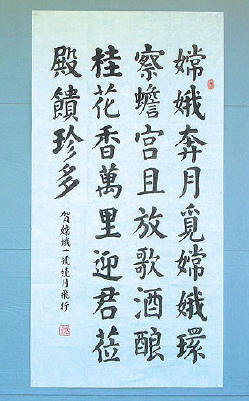 嫦娥奔月覓嫦娥環
察蟾宮且放歌酒酿
桂花香萬里迎君莅
殿饋珍多
賀嫦娥一號繞月飛行